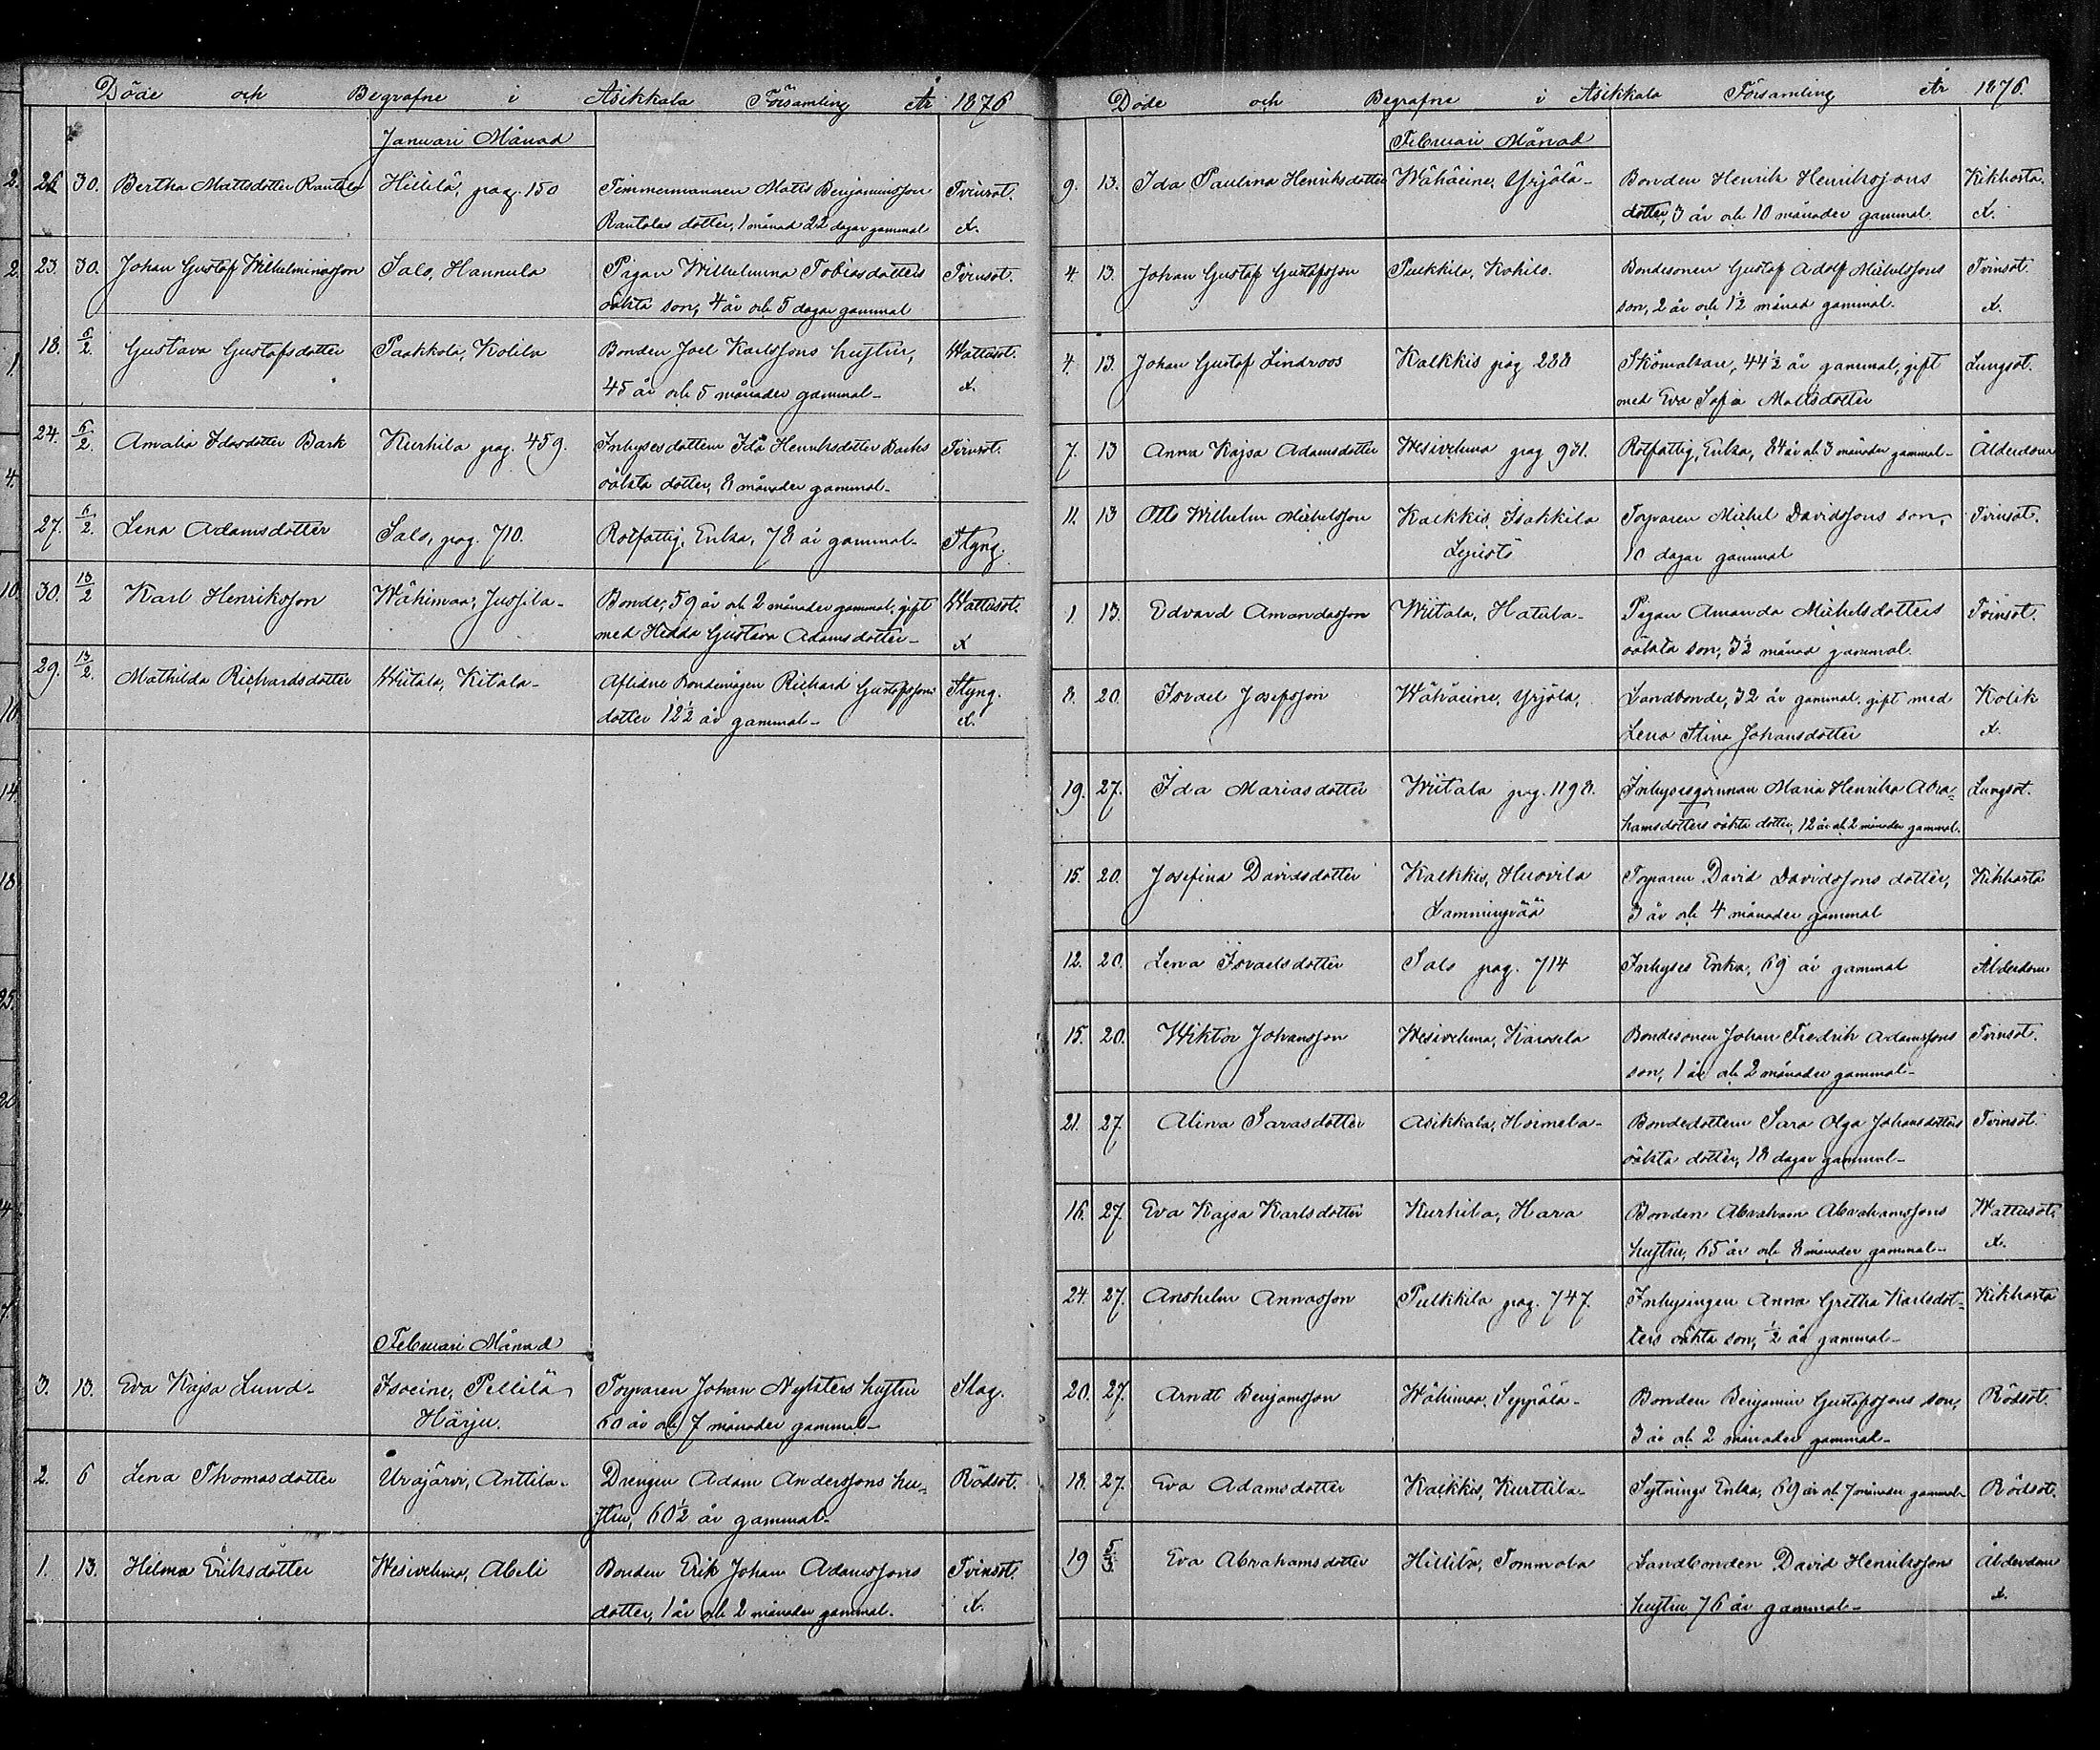 Döde och Begrafne i Asikkala Församling År 1876
Januari Månad
26 30. Bertha Mattsdotter Rantala Hillilä, pag. 150 Timmermannen Matts Benjaminsson Tvinsot.
Rantalas dotter, 1 månad 22 dagar gammal x.
23. 30. Johan Gustaf Wilhelminasson Salo, Hannula Pigan Wilhelmina Tobiasdotters Tvinsot.
oäkta son, 4 år och 5 dagar gammal
18. 6/2. Gustava Gustafsdotter Paakkola, Kolila Bonden Joel Karlssons hustru, Wattusot.
45 år och 5 månader gammal x.
24. 6/2. Amalia Idasdotter Bark Kurhila pag. 459. Inhysesdottern Ida Henriksdotter Barks Tvinsot.
oäkta dotter, 8 månader gammal
27. 6/2. Lena Adamsdotter Salo, pag. 710. Rotfattig, Enka, 78 år gammal Styng.
30. 13/2 Karl Henriksson Wähimaa, Jussila Bonde, 59 år och 2 månader gammal, gift Wattusot.
med Hedda Gustava Adamsdotter x
29. 13/2. Mathilda Richardsdotter Wiitala, Kitala Aflidne Bondemågen Richard Gustafssons Styng.
dotter 12½ år gammal x.
Februari Månad
3. 13. Eva Kajsa Lund Isoeine, Pellilä Torparen Johan Nylsters hustru Slag.
Härju. 60 år och 7 månader gammal
2. 6 Lena Thomasdotter Urajärvi, Anttila Drengen Adam Anderssons hu- Rödsot.
stru, 60½ år gammal
1. 13. Helma Eriksdotter Wesivehma, Abeli Bonden Erik Johan Adamssons Tvinsot.
dotter, 1 år och 2 månader gammal. x.
Döde och Begrafne i Asikkala Församling År 1876.
Februari Månad
9. 13. Ida Paulina Henriksdotter Wähäeine, Yrjölä Bonden Henrik Henrikssons Kikhosta.
dotter, 3 år och 10 månader gammal. x.
4. 13. Johan Gustaf Gustafsson Pulkkila, Kohilo. Bondesonen Gustaf Adolf Mickelssons Tvinsot.
son, 2 år och 1½ månad gammal. x.
4. 13. Johan Gustaf Lindroos Kalkkis pag 288 Skomakare, 44½ år gammal, gift Lungsot.
med Eva Sofia Mattsdotter
7. 13 Anna Kajsa Adamsdotter Wesivehma pag 931. Rotfattig, Enka, 84 år och 3 månader gammal Ålderdom
11. 13 Otto Wilhelm Mickelsson Kalkkis, Isakkila Torparen Mickel Davidssons son, Tvinsot.
Lepistö 10 dagar gammal
1. 13. Edvard Amandasson Wiitala, Hatula Pigan Amanda Mickelsdotters Tvinsot.
oäkta son, 3½ månad gammal.
8. 20. Israel Josefsson Wähäeine, Yrjölä, Landbonde, 32 år gammal, gift med Kolik
Lena Stina Johansdotter x.
19. 27. Ida Mariasdotter Wiitala pag. 1198. Inhysesqvinnan Maria Henrika Abra- Lungsot.
hamsdotters oäkta dotter, 12 år och 2 månader gammal.
15. 20. Josefina Davidsdotter Kalkkis, Huovila Torparen David Davidssons dotter, Kikhosta
Lamminpää 3 år och 4 månader gammal
12. 20. Lena Israelsdotter Salo pag. 714 Inhyses Enka, 69 år gammal Ålderdom
15. 20. Wiktor Johansson Wesivehma, Karosela Bondesonen Johan Fredrik Adamssons Tvinsot.
son, 1 år och 2 månader gammal
21. 27. Alina Sarasdotter Asikkala, Hoimela Bondedottern Sara Olga Johansdotters Tvinsot.
oäkta dotter, 18 dagar gammal
16. 27. Eva Kajsa Karlsdotter Kurhila, Hara Bonden Abraham Abrahamssons Wattusot.
hustru, 65 år och 8 månader gammal x.
24. 27. Anshelm Annasson Pulkkila pag. 747. Inhysingen Anna Gretha Karlsdot- Kikhosta
ters oäkta son, ½ år gammal
20. 27. Arndt Benjamsson Wähimaa, Seppälä Bonden Benjamin Gustafssons son, Rödsot.
3 år och 2 månader gammal
18. 27. Eva Adamsdotter Kalkkis, Kurttila Sytnings Enka, 69 år och 7 månader gammal Rödsot.
19 5/3. Eva Abrahamsdotter Hillilä, Tommola Landbonden David Henrikssons Ålderdom
hustru 76 år gammal x.